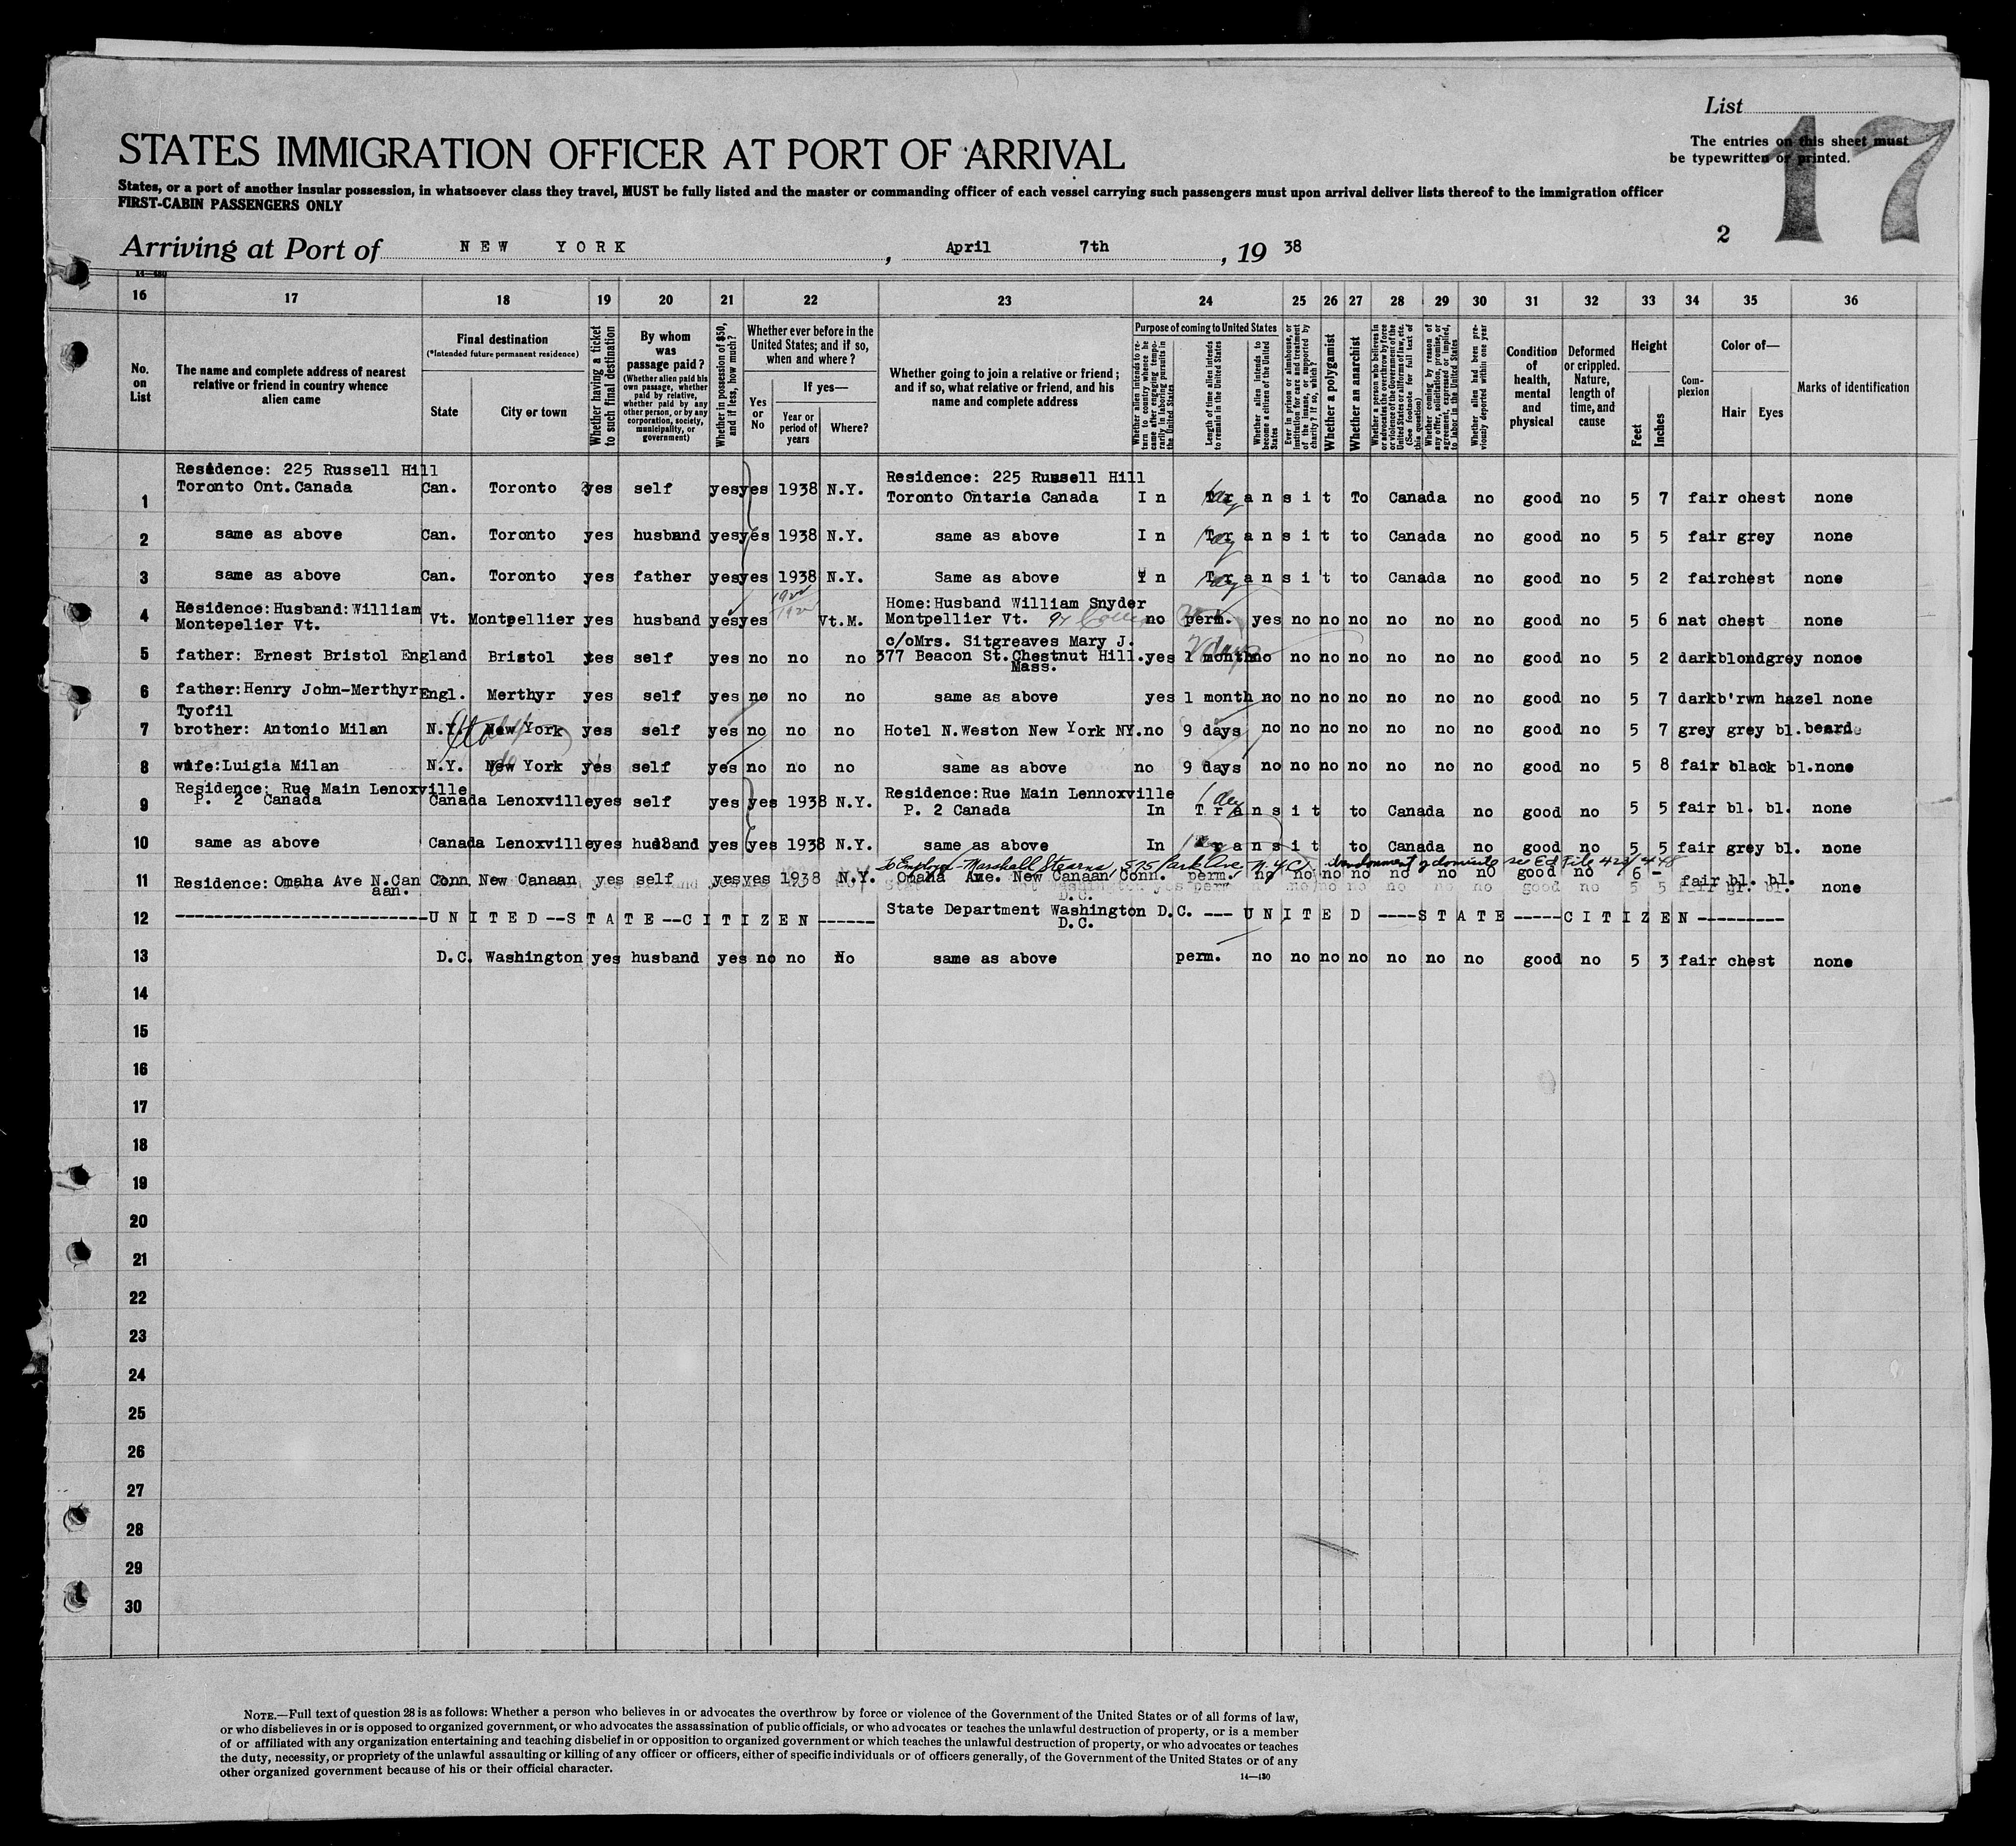 List
17
The entries on this sheet must
be typewritten or printed.
STATES IMMIGRATION OFFICER AT PORT OF ARRIVAL
States, or a port of another insular possession, in whatsoever class they travel, MUST be fully listed and the master or commanding officer of each vessel carrying such passengers must upon arrival deliver lists thereof to the immigration officer
FIRST-CABIN PASSENGERS ONLY
2
Arriving at Port of NEW YORK, April 7th, 19 38
14—430
16 17 18 19 20 21 22 23 24 25 26 27 28 29 30 31 32 33 34 35 36
No. on List
The name and complete address of nearest relative or friend in country whence alien came
Final destination
(*Intended future permanent residence)
State
City or town
Whether having a ticket to such final destination
By whom was passage paid?
(Whether alien paid his own passage, whether paid by relative, whether paid by any other person, or by any corporation, society, municipality, or government)
Whether in possession of $50, and if less, how much?
Whether ever before in the United States; and if so, when and where?
Yes or No
If yes—
Year or period of years
Where?
Whether going to join a relative or friend; and if so, what relative or friend, and his name and complete address
Purpose of coming to United States
Whether alien intends to return to country whence he came after engaging temporarily in laboring pursuits in the United States
Length of time alien intends to remain in the United States
Whether alien intends to become a citizen of the United States
Ever in prison or almshouse, or institution for care and treatment of the insane, or supported by charity? If so, which?
Whether a polygamist
Whether an anarchist
Whether a person who believes in or advocates the overthrow by force or violence of the Government of the United States or all forms of law, etc. (See footnote for full text of this question)
Whether coming by reason of any offer, solicitation, promise, or agreement, expressed or implied, to labor in the United States
Whether alien had been previously deported within one year
Condition of health, mental and physical
Deformed or crippled. Nature, length of time, and cause
Height
Feet
Inches
Complexion
Color of—
Hair
Eyes
Marks of identification
Residence: 225 Russell Hill Residence: 225 Russell Hill
1 Toronto Ont. Canada Can. Toronto yes self yes yes 1938 N.Y. Toronto Ontaria Canada In Transit To Canada no good no 5 7 fair chest none
2 same as above Can. Toronto yes husband yes yes 1938 N.Y. same as above In Transit to Canada no good no 5 5 fair grey none
3 same as above Can. Toronto yes father yes yes 1938 N.Y. Same as above In Transit to Canada no good no 5 2 fair chest none
Residence: Husband: William Home: Husband William Snyder
4 Montepelier Vt. Vt. Montpellier yes husband yes yes 1922 Vt.M. Montpellier Vt. no perm. yes no no no no no no good no 5 6 nat chest none
c/o Mrs. Sitgreaves Mary J.
5 father: Ernest Bristol England Bristol yes self yes no no no 377 Beacon St. Chestnut Hill. yes 1 month no no no no no no no good no 5 2 dark blond grey nonoe
Mass.
6 father: Henry John-Merthyr Engl. Merthyr yes self yes no no no same as above yes 1 month no no no no no no no good no 5 7 dark b'rwn hazel none
Tyofil
7 brother: Antonio Milan N.Y. New York yes self yes no no no Hotel N.Weston New York NY. no 9 days no no no no no no no good no 5 7 grey grey bl. beard
8 wife: Luigia Milan N.Y. New York yes self yes no no no same as above no 9 days no no no no no no no good no 5 8 fair black bl. none
Residence: Rue Main Lenoxville Residence: Rue Main Lennoxville
9 P. 2 Canada Canada Lenoxville yes self yes yes 1938 N.Y. P. 2 Canada In 1 day Transit to Canada no good no 5 5 fair bl. bl. none
10 same as above Canada Lenoxville yes husband yes yes 1938 N.Y. same as above In Transit to Canada no good no 5 5 fair grey bl. none
to Employer - Marshall Stearns, 575 Park Ave, N.Y.C.
11 Residence: Omaha Ave N.Can Conn. New Canaan yes self yes yes 1938 N.Y. Omaha Ave. New Canaan Conn. perm. no no no no no no no good no 6 - fair bl. bl. none
aan.
12 ------UNITED--STATE--CITIZEN------ State Department Washington D.C. ---UNITED----STATE-----CITIZEN---------
D.C.
13 D.C. Washington yes husband yes no no No same as above perm. no no no no no no no good no 5 3 fair chest none
14
15
16
17
18
19
20
21
22
23
24
25
26
27
28
29
30
NOTE.—Full text of question 28 is as follows: Whether a person who believes in or advocates the overthrow by force or violence of the Government of the United States or of all forms of law,
or who disbelieves in or is opposed to organized government, or who advocates the assassination of public officials, or who advocates or teaches the unlawful destruction of property, or is a member
of or affiliated with any organization entertaining and teaching disbelief in or opposition to organized government or which teaches the unlawful destruction of property, or who advocates or teaches
the duty, necessity, or propriety of the unlawful assaulting or killing of any officer or officers, either of specific individuals or of officers generally, of the Government of the United States or of any
other organized government because of his or their official character.
14—430